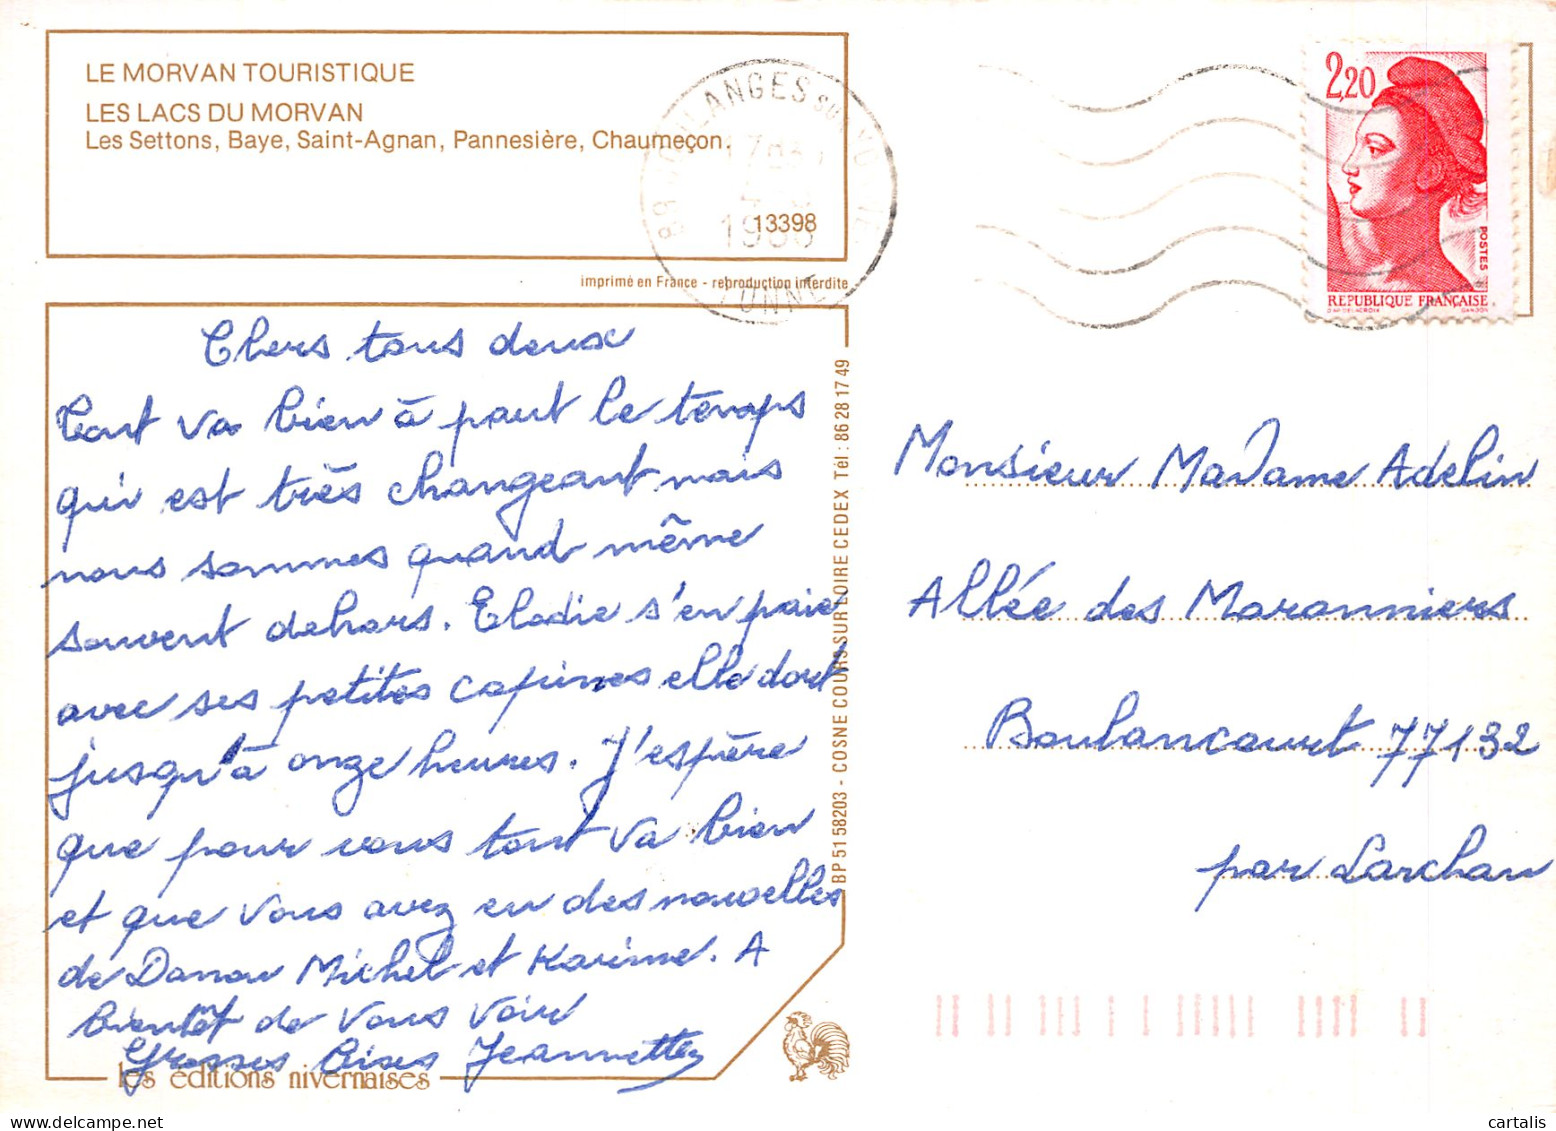 LE MORVAN TOURISTIQUE
LES LACS DU MORVAN
Les Settons, Baye, Saint-Agnan, Pannesière, Chaumeçon.
13398
imprimé en France - reproduction interdite
YONNE
2,20
POSTES
REPUBLIQUE FRANÇAISE
GANDON
Chers tous deux
Tout va bien à part le temps
qui est très changeant mais
nous sommes quand même
souvent dehors. Elodie s'en paie
avec ses petites copines elle dort
jusqu'à onze heures. J'espère
que pour vous tout va bien
et que vous avez eu des nouvelles
de Danou Michel et Karine. A
bientôt de vous voir
Grosses bises Jeannette
les éditions nivernaises
BP 51 58203 - COSNE COURS SUR LOIRE CEDEX Tél : 86 28 17 49
Monsieur Madame Adelin
Allée des Maronniers
Boulancourt 77132
par Larchan
cartalis